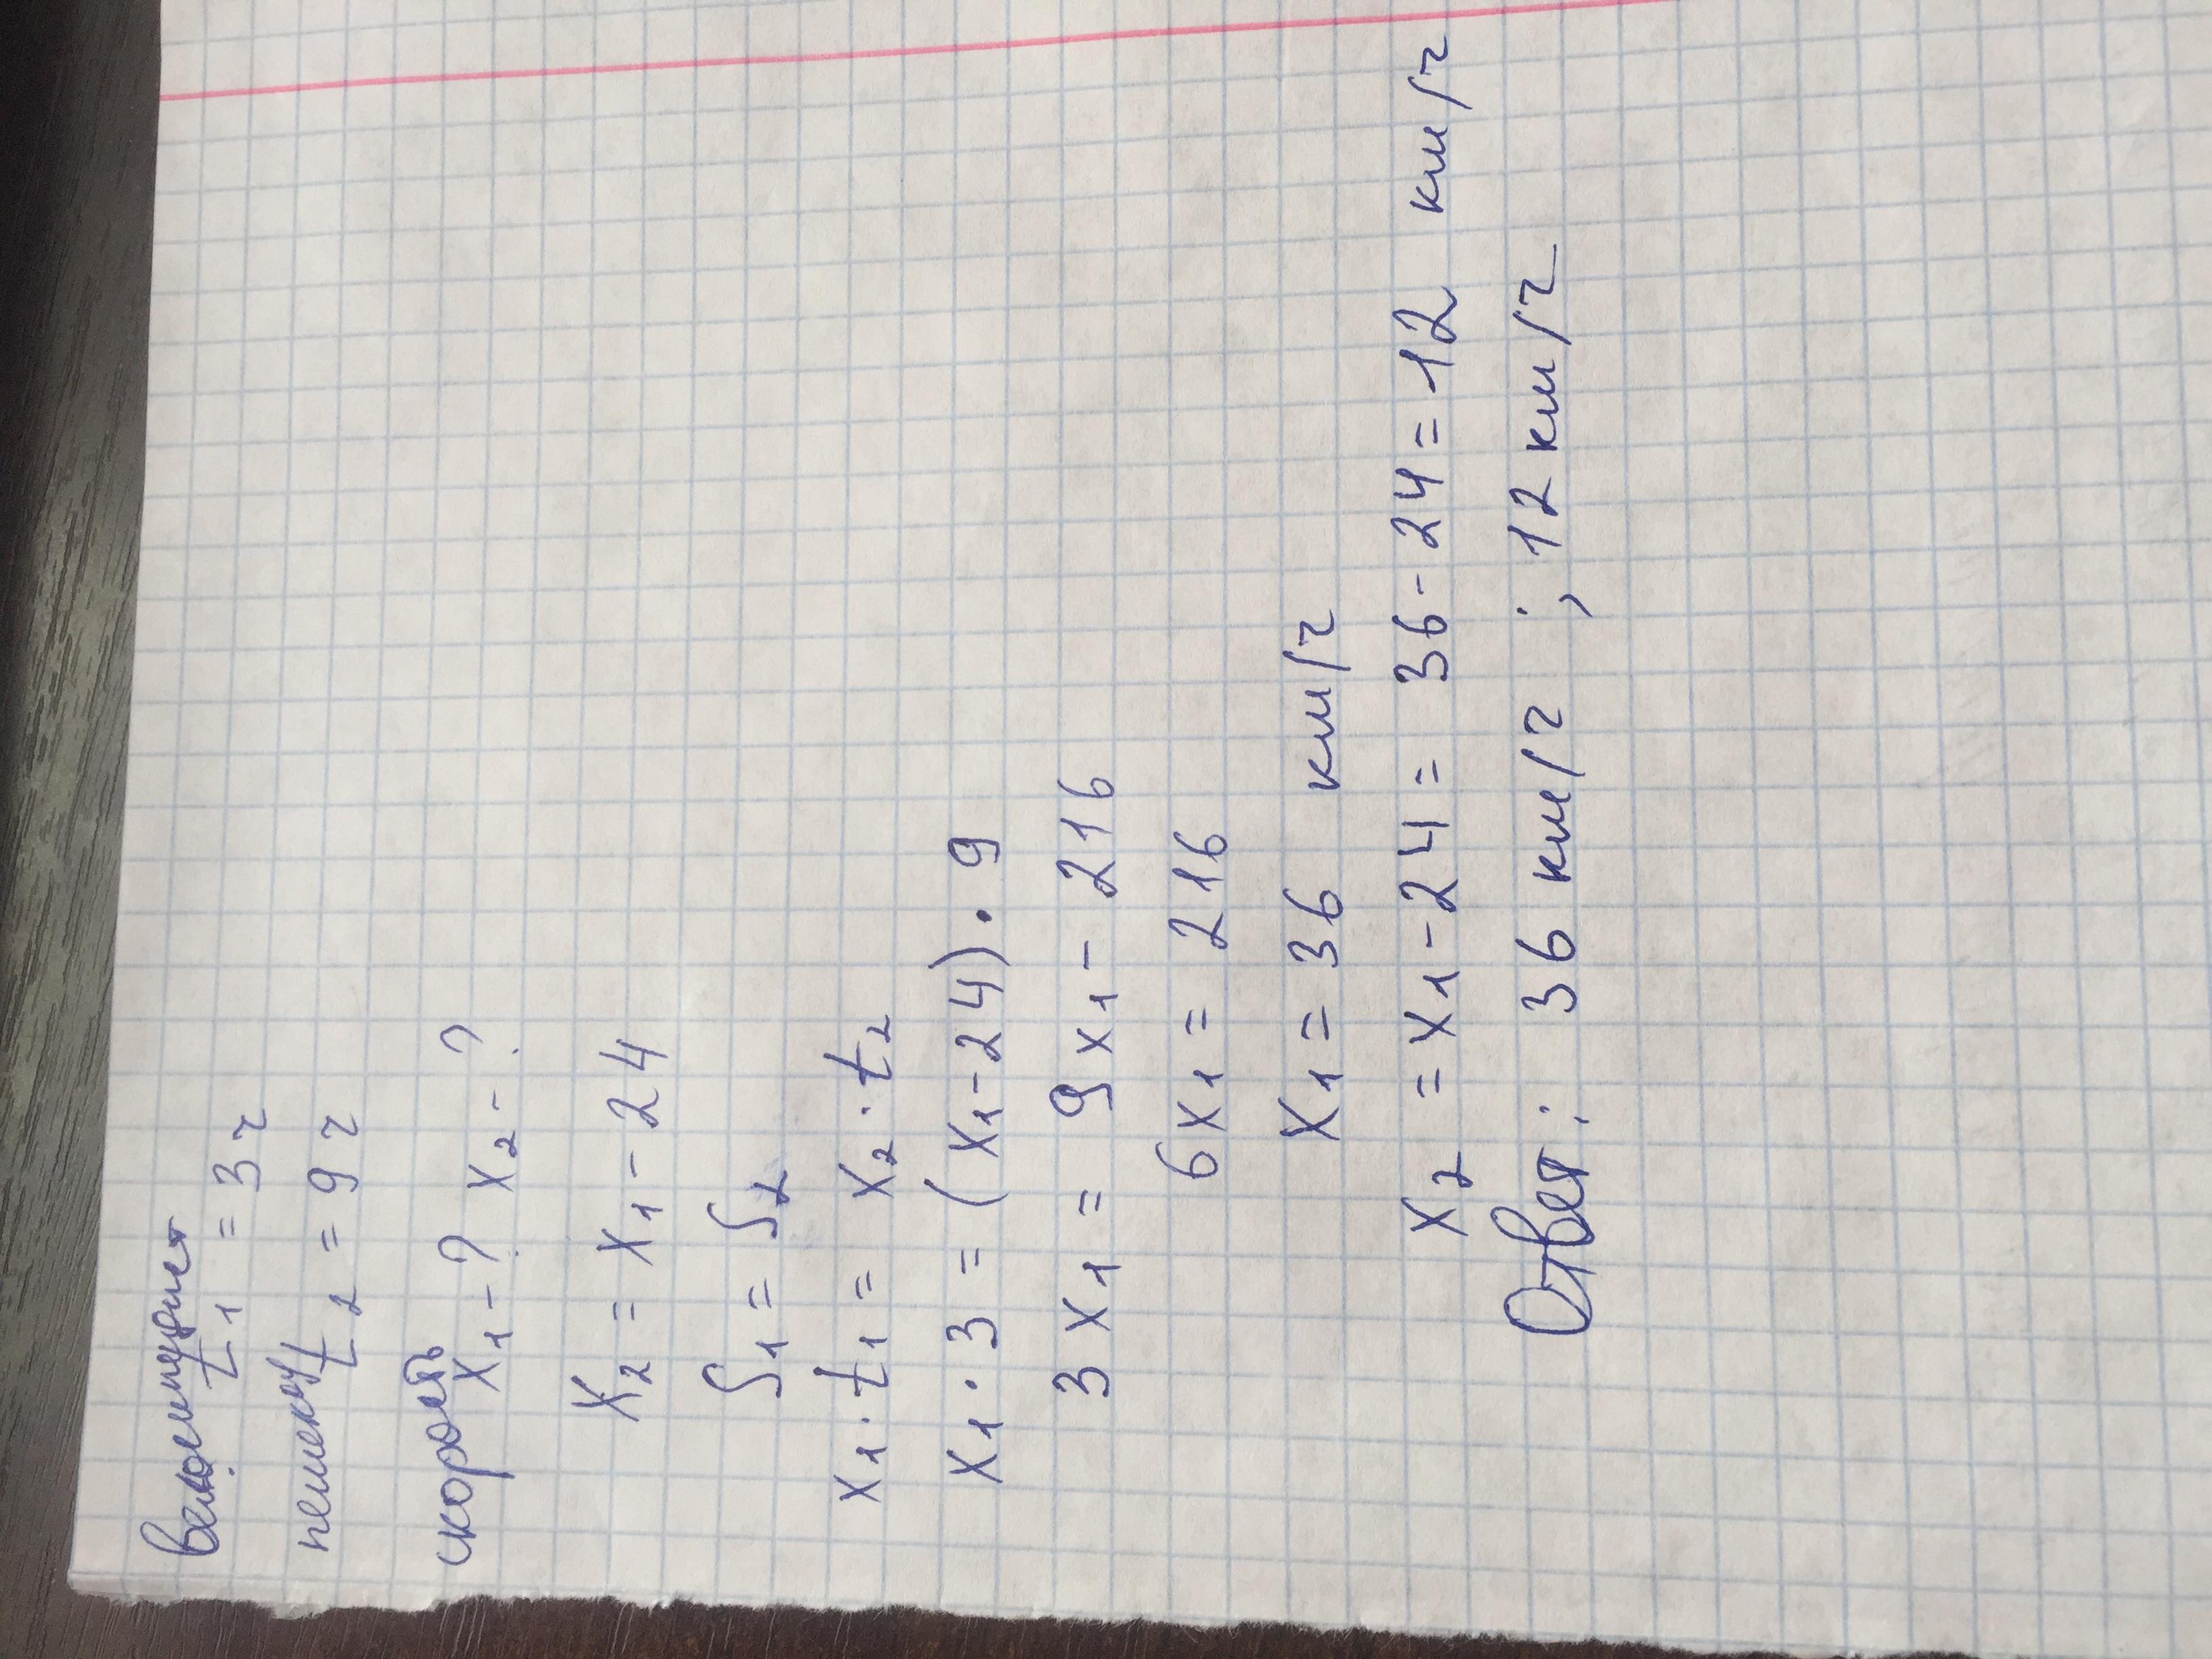 велосипедист
t₁ = 3 ч
пешеход t₂ = 9 ч
скорость
x₁ - ? x₂ - ?
x₂ = x₁ - 24
S₁ = S₂
x₁ · t₁ = x₂ · t₂
x₁ · 3 = (x₁ - 24) · 9
3x₁ = 9x₁ - 216
6x₁ = 216
x₁ = 36 км/ч
x₂ = x₁ - 24 = 36 - 24 = 12 км/ч
Ответ: 36 км/ч ; 12 км/ч